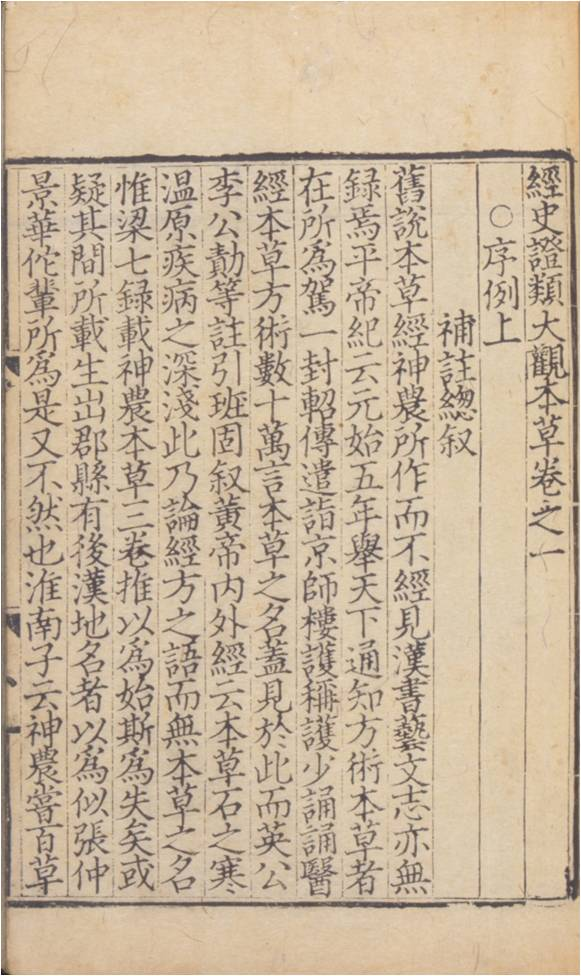 經史證類大觀本草卷之一
○序例上
補註總叙
舊說本草經神農所作而不經見漢書藝文志亦無
録焉平帝紀云元始五年舉天下通知方術本草者
在所爲駕一封軺傳遣詣京師樓護稱護少誦誦醫
經本草方術數十萬言本草之名蓋見於此而英公
李公勣等註引班固叙黄帝内外經云本草石之寒
温原疾病之深淺此乃論經方之語而無本草之名
惟梁七録載神農本草三卷推以爲始斯爲失矣或
疑其間所載生出郡縣有後漢地名者以爲似張仲
景華佗輩所爲是又不然也淮南子云神農嘗百草